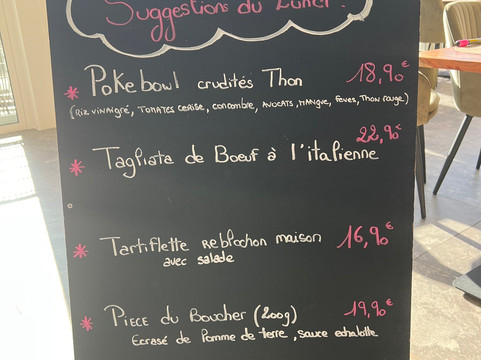 Suggestions du Lunch !
* Poke bowl crudités Thon 18,90€
(Riz vinaigré, Tomates cerise, concombre, avocats, Mangue, Feves, Thon rouge)
22,90€
* Tagliata de Boeuf à l'italienne
* Tartiflette Reblochon maison 16,90€
avec salade
* Piece du Boucher (200g) 19,90€
Ecrasé de Pomme de terre, sauce echalotte